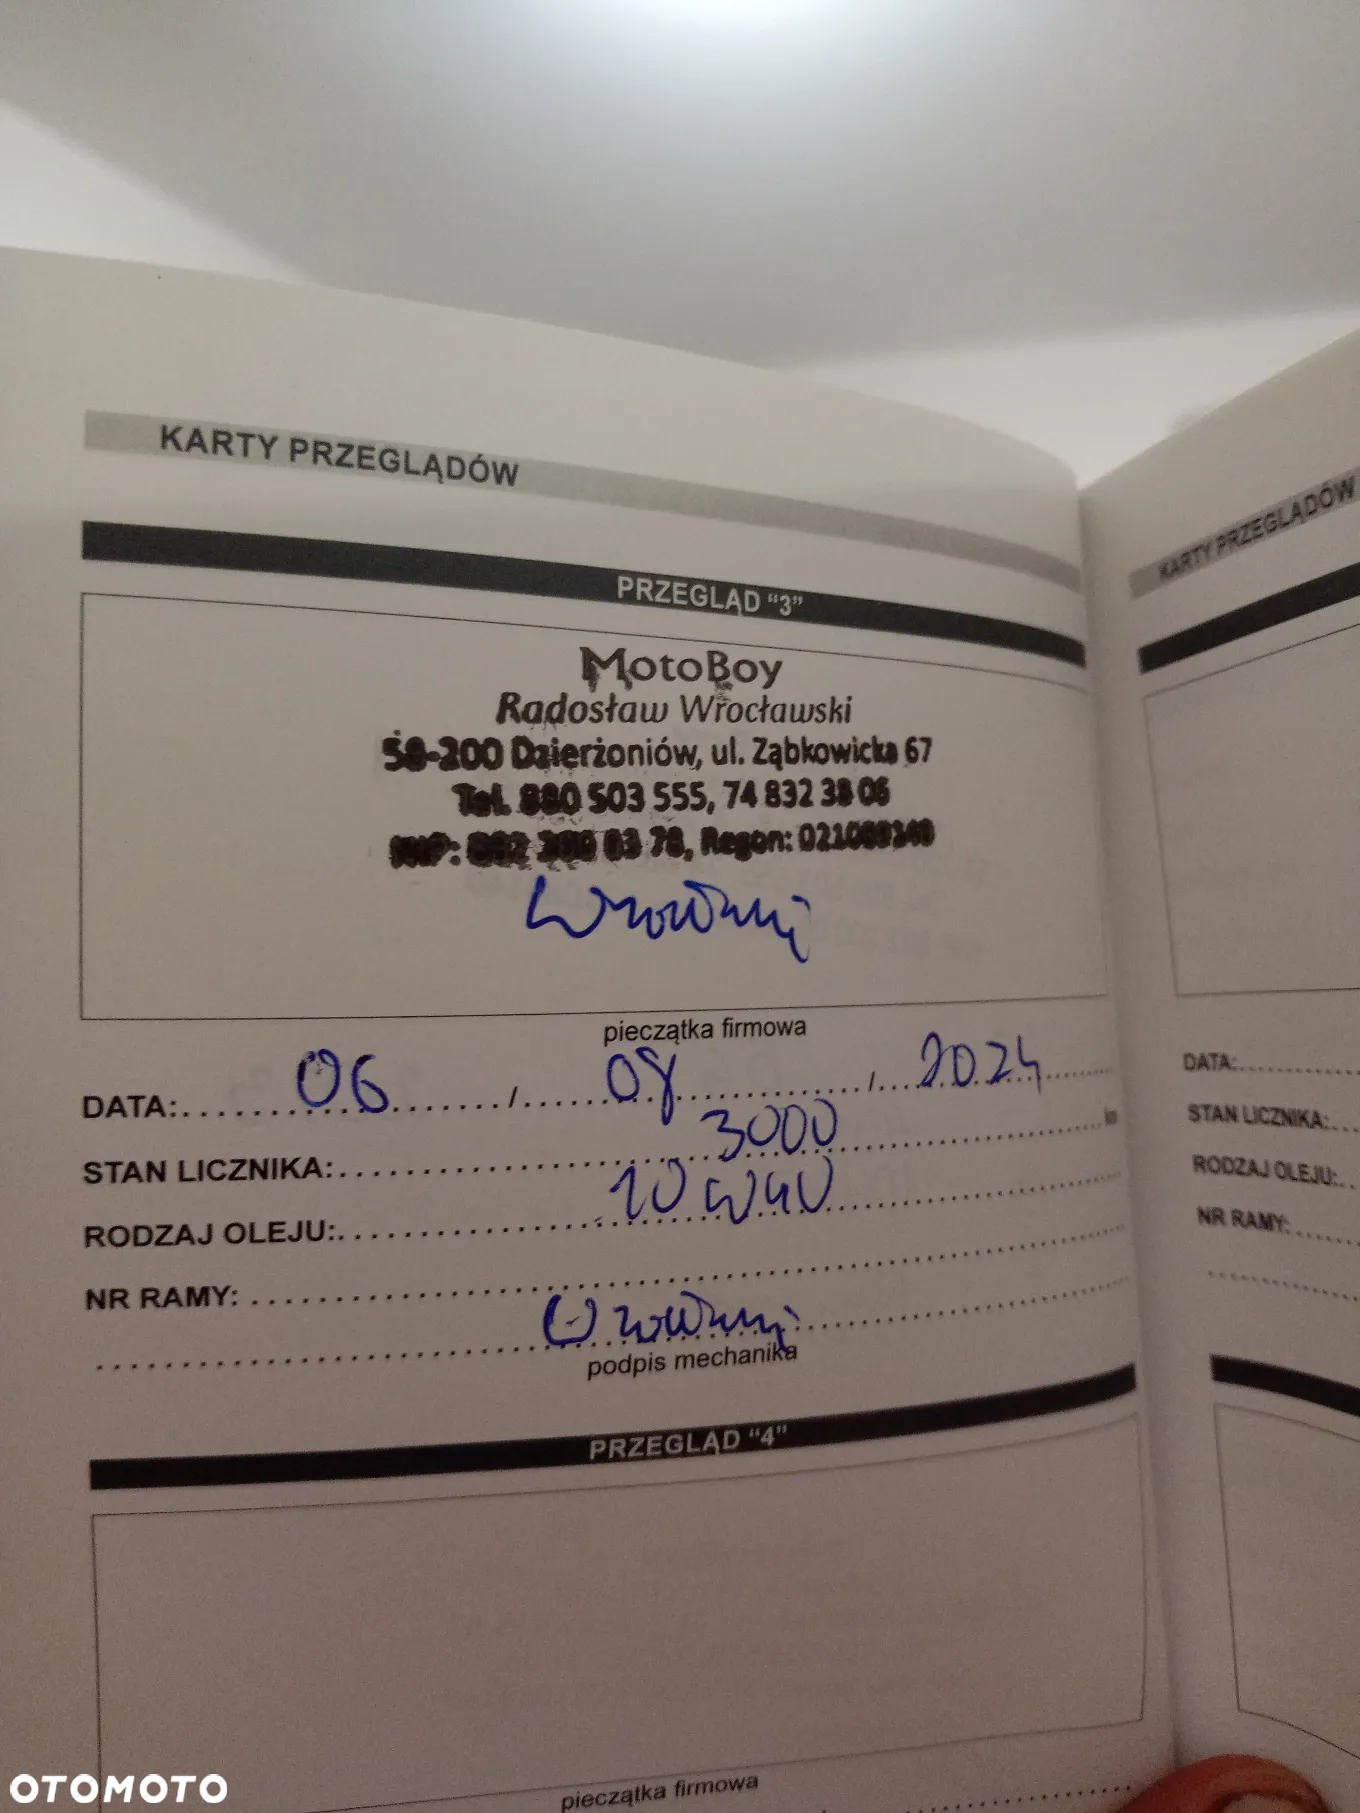 KARTY PRZEGLĄDÓW
PRZEGLĄD “3”
MotoBoy
Radosław Wrocławski
58-200 Dzierżoniów, ul. Ząbkowicka 67
Tel. 880 503 555, 74 832 38 06
NIP: 78, Regon:
pieczątka firmowa
DATA: 06 / 08 / 2024
STAN LICZNIKA: 3000 km
RODZAJ OLEJU: 10W40
NR RAMY:
podpis mechanika
PRZEGLĄD “4”
pieczątka firmowa
KARTY PRZEGLĄDÓW
DATA:
STAN LICZNIKA:
RODZAJ OLEJU:
NR RAMY:
OTOMOTO